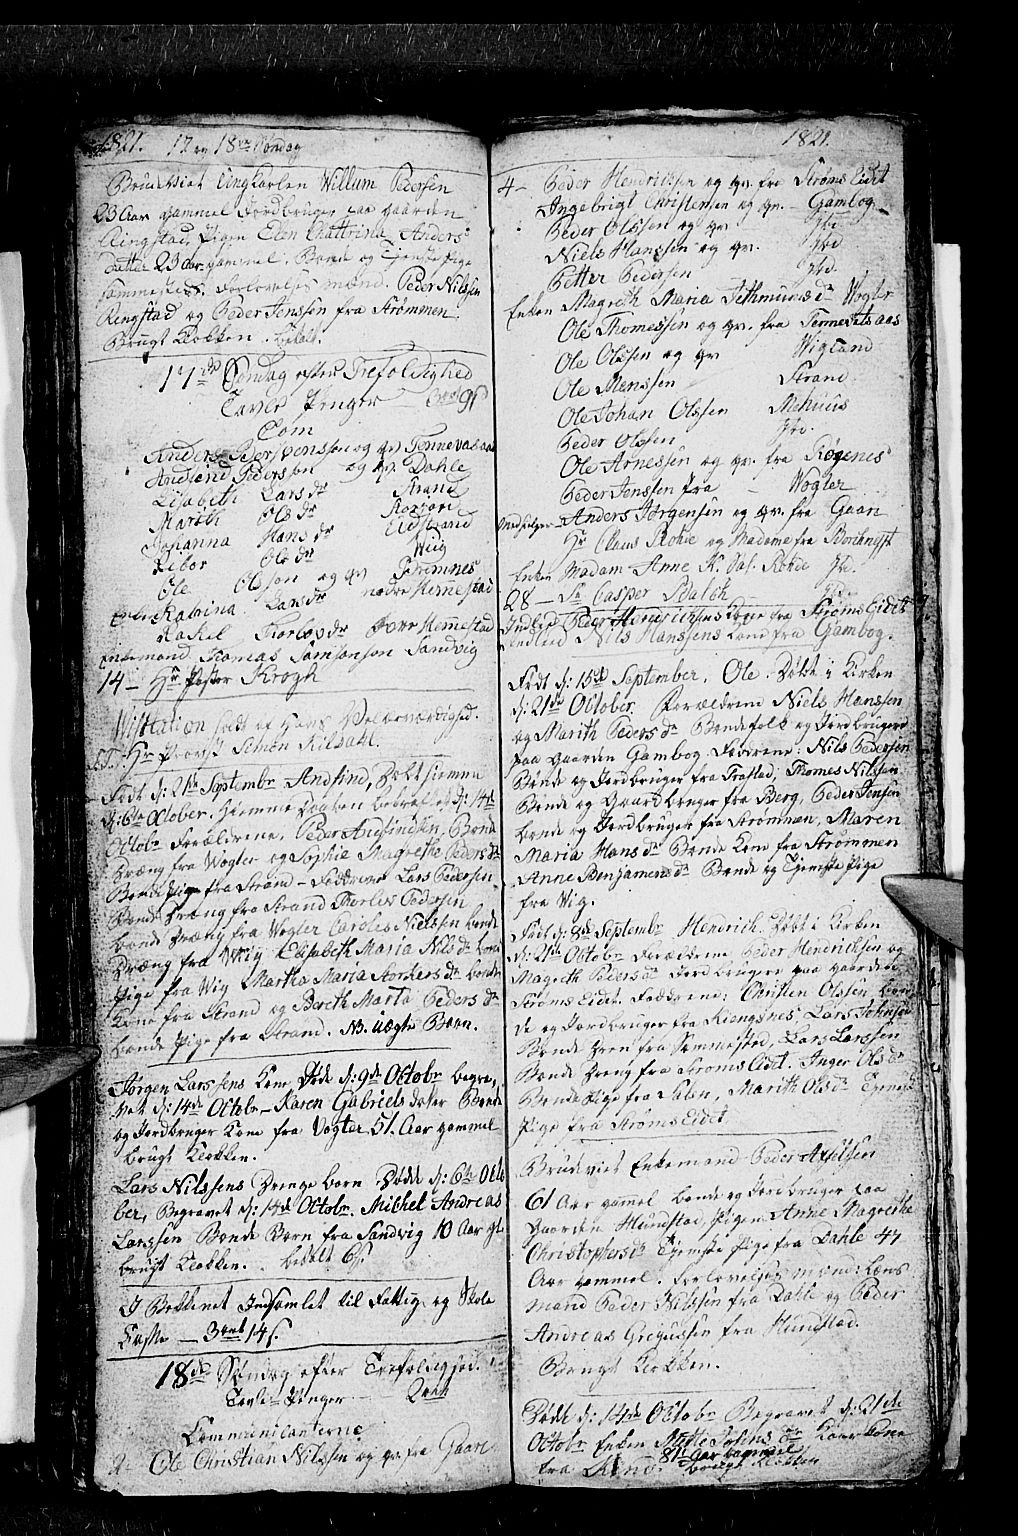 1821. 17 og 18de Søndag
Brudviet Ungkarlen Willum Pedersen
23 Aar gammel Jordbruger paa gaarden
Ringstad, Pigen Elen Cattrina Anders
datter 23 Aar gammel. Bonde og Tjeneste Pige
sammesteds. Forlovelses mænd. Peder Nilssen
Ringstad og Peder Jenssen fra Strømmen.
Brugt Klokken. betalt.
17de Søndag efter Trefoldighed
Tavle Penger
Com
Anders Jespenssen og qv Tennevasaas
Andsind Pederssen og qv. Dahle
Lisabeth Lars dr Strand
Marith Ols dr
Johanna Hans dr Eidstrand
Ols dr Wiig
Ole Olsson og qv Bremnes
Enken Katrina Lars dr nædre Hemestad
Rakel Thorlevs dr Over Hemestad
Enkemand Thomas Tomsonson Sandvig
14 — Hr Pastor Krogh
Wisitation holdt af Hans Velærværdighed.
Hr Provst Simon Kildahl
Født d: 21de Septembr Andsind, Døbt hiemme
d: 6te October, hiemme Daaben bekræftet d: 14de
Octobr Forældrene, Peder Andsindsen, Bonde
Dræng fra Vogter og Sophie Magrethe Peders dr
Bonde Pige fra Strand — Fadderne Lars Pedersen
Bonde Dræng fra Strand Thorlev Pedersen
bonde Dræng fra Vogter Carolus Nielssen bonde
Dræng fra Wiig Elisabeth Maria Nils dr bonde
Pige fra Wig Martha Maria dr bonde
Kone fra Strand og Bereth Marta Peders dr
bonde Pige fra Strand. NB. Uægte Barn.
Jørgen Larssens Kone, Døde d: 9de Octobr begra,
vet d: 14de Octobr — Karen Gabriels dotter Bonde
og Jordbruger Kone fra Vogter 51. Aar gammel
brugt Klokken.
Lars Nilssens Drenge barn Døde d: 6te Octo
ber, Begravet d: 14de Octobr. Michel Andreas
Larssen Bonde Barn fra Sandvig 10 Aar gl:
brugt Klokken. betalt 6s.
I Bekkenet Indsamlet til Fattig og Skole
Casse — 3 ort 14s.
18de Søndag efter Trefoldighed.
Tavle Penger — 2 ort
Communicanterne
2. Ole Christian Nilssen og qv. fra Gaare
1821.
4 — Peder Hendrichsen og qv. fra Strøms Eidet
Ingebrigt Christensen og qv. — Gambog
Peder Olssen og qv. Ibd.
Niels Hanssen og qv. Ibd.
Petter Pedersen Ibd.
Enken Magreth Maria dr Vogter
Ole Thomessen og qv. fra Tennevatsaas
Ole Olssen og qv Wigland
Ole Monssen Strand.
Ole Johan Olssen Mehuus
Peder Olssen Ibd.
Ole Arnessen og qv. fra Røgenes
Peder Jenssen fra — Vogter
Medhielper Anders Jørgensen og qv. fra Gaare
Hr Claus Rohde og Madame fra Borkenæst
Enken Madam Anne Rohde Ibd.
28 — Sr Casper Balch Ibd.
Indled Peder Hendrichsens Kone fra Strøms Eidet
Indled Nils Hanssens Kone fra Gambog.
Født d: 15de September, Ole. Døbt i Kirken
d: 21de October. Forældrene Niels Hanssen
og Marith Peders dr Bondefolk og Jordbrugere
paa Gaarden Gambog Fadderne: Nils Pedersen
Bonde og Jordbruger fra Trastad, Thomes Nilssen
Bonde og Gaardbruger fra Berg, Peder Jensen
bonde og Jordbruger fra Strømmen, Maren
Maria Hans dr Bonde Kone fra Strømmen
Anne Benjamens dr Bonde og Tjeneste Pige
fra Wig.
Født d: 8de Septembr Hendrich. Døbt i Kirken
d: 21de Octobr Forældrene, Peder Hendrichsen og
Mageth Peders dr Jordbrugere paa gaarden
Strøms Eidet. Fadderne: Christen Olssen bon
de og Jordbruger fra Kiengsnes Lars Johnsen
Bonde Dren fra Hemmestad, Lars Larssen
Bonde Dreng fra Strøms Eidet. Inger Ols dr
Bonde Pige fra Salen, Marith Ols dr Tjeneste
Pige fra Strøms Eidet
Brudeviet Enkemand Peder Axelsen
61 Aar gamel bonde og Jordbruger paa
Gaarden Hundstad, Pigen Anne Magrethe
Christophers dr Tjeneste Pige fra Dahle 44
Aar gammel. Forlovelses mænd: Læns
mand Peder Nilssen fra Dahle og Peder
Andreas Gregussen fra Hundstad.
Brugt Klokken.
Døde d: 14de October Begravet d: 21de
Octobr Enken Mette Johns dr Kaarkone
fra 81 Aar gammel
brugt Klokken